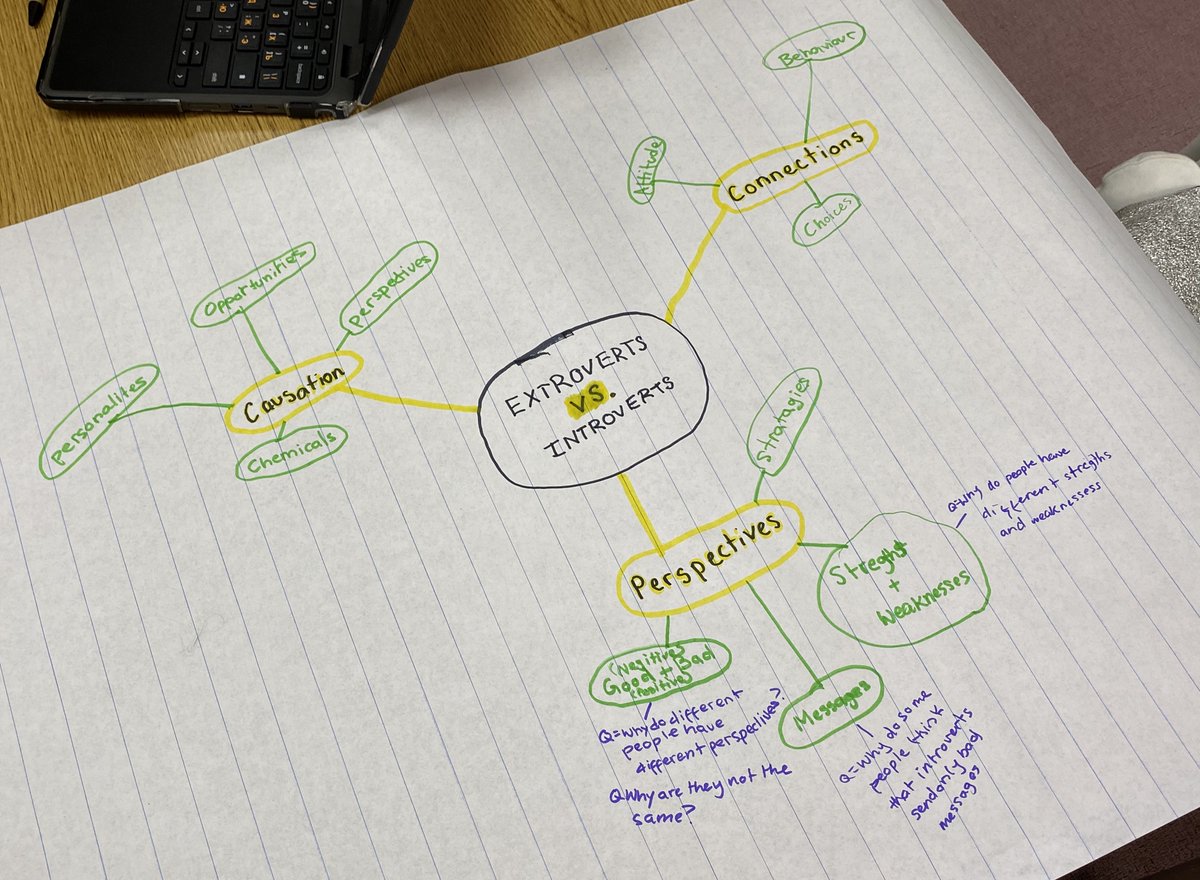 EXTROVERTS
VS.
INTROVERTS
Connections
Behaviour
Attitude
Choices
Causation
Opportunities
Perspectives
Personalites
Chemicals
Perspectives
Stratagies
Streght
+
Weaknesses
Q=Why do people have
different stregths
and weaknessess
(Negitive)
Good + Bad
(Positive)
Q=Why do different
people have
different perspectives?
Q Why are they not the
same?
Messages
Q=Why do some
people think
that introverts
send only bad
messages